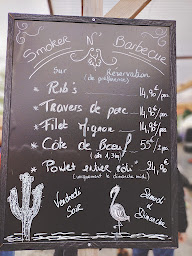 Smoker N' Barbecue
Sur Réservation
(de préférence)
* Rib's 14,90€/pers
* Travers de porc 14,90/pers
* Filet Mignon 14,90/pers
* Côte de Boeuf 55€/
(de 1,3 kg)
* Poulet entier rôti 24,90€
(uniquement le dimanche midi)
Vendredi Soir
Samedi & Dimanche